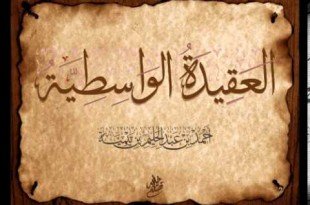 العَقِيدَةُ الوَاسِطِيَّة
أحمد بن عبد الحليم بن تيمية